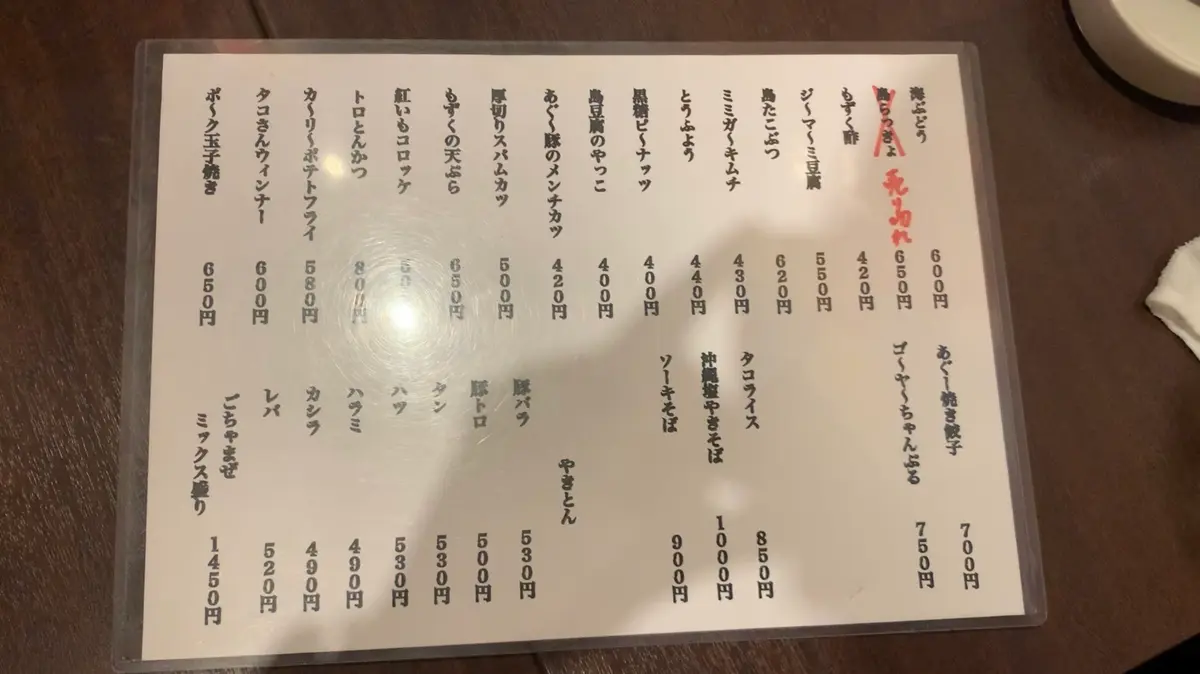 海ぶどう 600円
島らっきょ 売り切れ 650円
もずく酢 420円
ジ〜マ〜ミ豆腐 550円
島たこぶつ 620円
ミミガ〜キムチ 430円
とうふよう 440円
黒糖ピ〜ナッツ 400円
島豆腐のやっこ 400円
あぐ〜豚のメンチカツ 420円
厚切りスパムカツ 500円
もずくの天ぷら 650円
紅いもコロッケ
トロとんかつ 800円
カ〜リ〜ポテトフライ 580円
タコさんウィンナー 600円
ポ〜ク玉子焼き 650円
あぐー焼き餃子 700円
ゴ〜ヤ〜ちゃんぷる 750円
タコライス 850円
沖縄塩やきそば 1000円
ソーキそば 900円
やきとん
豚バラ 530円
豚トロ 500円
タン 530円
ハツ 530円
ハラミ 490円
カシラ 490円
レバ 520円
ごちゃまぜ
ミックス盛り 1450円